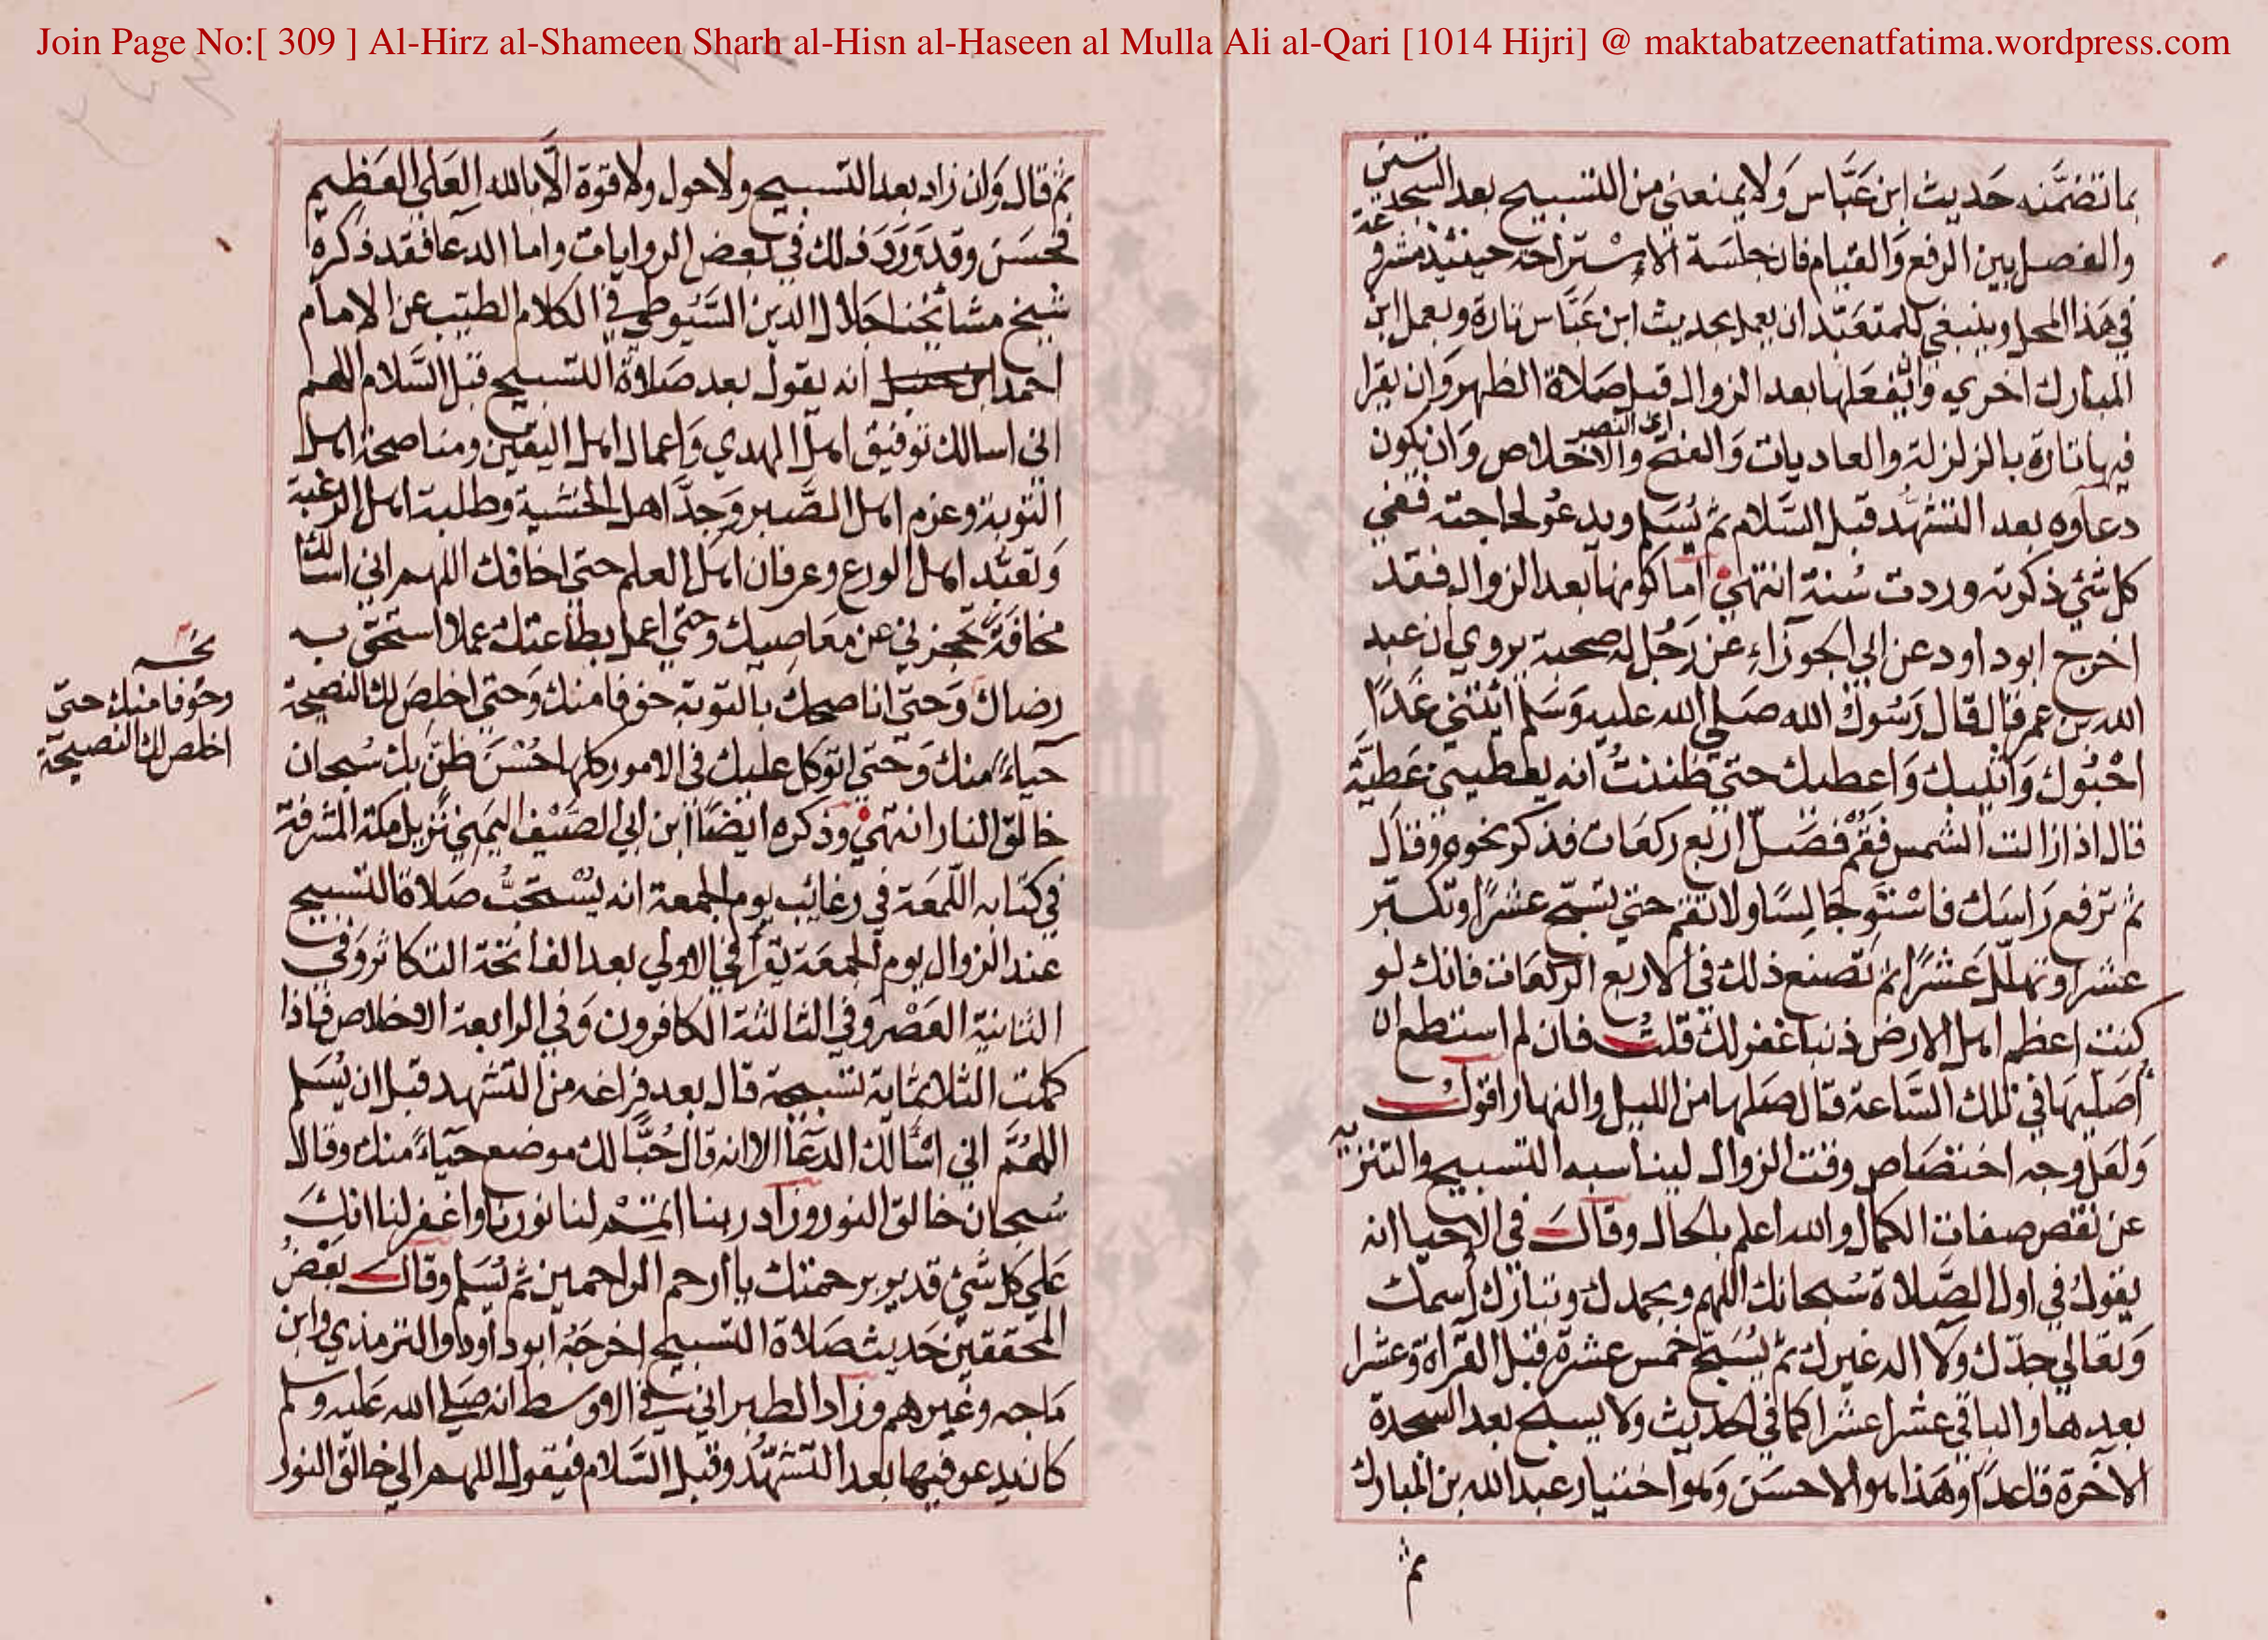 Join Page No:[ 309 ] Al-Hirz al-Shameen Sharh al-Hisn al-Haseen al Mulla Ali al-Qari [1014 Hijri] @ maktabatzeenatfatima.wordpress.com
بما تضمَّنه حَديث ابن عَبَّاس وَلا يمنعني من التسبيح بعد السجدتين
والفصل بين الرفع وَالقيام فان جلسَة الاسْتراحه حينئذ مشروعة
في هَذا المحل وينبغي للمتعَبّد ان يعمل بحديث ابن عَبَّاس تارة ويعمل ابن
المبارك اخري وَان يفعَلها بعد الزوال قبل صَلاة الظهر وَان يقرا
فيها تارة بالزلزلة والعاديات وَالفتح والاخلاص وَان يكون
اي النصر
دعآوه بعد التشهّد قبل السَّلام ثم يُسَلم ويدعُو لحاجته ففي
كل شئ ذكرته وردت سُنة انتهي اما كونها بعد الزوال فقد
اخرج ابوداود عن ابي الجوزَاءِ عن رَجُل له صحبة يروي ان عبد
الله بن عمر قال قال رَسُوك الله صَلي الله عليه وَسَلم ائتني غَدًا
احْبُوك وَاثيبك وَاعطيك حتي ظننتُ انه يعطيني عَطيَّة
قال اذا زالت الشمس فقُمْ فصَلّ اربع ركعَات فذكر نحوه وقال
ثم ترفع رَاسَك فاسْتَو جَالِسًا ولا تقم حتي تسَبّح عشرًا وتكبّر
عشرا وتهلّل عَشرًا ثم تصنع ذلك في الاربع الركعَات فانك لو
كنت اعظم اهل الارض ذنبا غفر لك قلتُ فان لم استطع ان
أصَليهَا في تلك السَّاعة قال صَلها من الليل والنهار اقوك
وَلعَل وجه اختصَاص وقت الزوال ليناسبه التسبيح والتنزيه
عن نقص صفات الكمال والله اعلم بالحال وقالَ في الاحيا انه
يقولُ في اول الصَّلاة سُبحانك اللهم وبحمدك وتبارك اسمك
وَتعَالي جدّك وَلآ اله غيرك ثم يُسَبّح خمس عشرة قبل القرآة وَعشرا
بعدها والباقي عشرا عشرا كما في الحديث ولا يسبح بعد السجدة
الآخرة قاعدًا وهَذا هو الاحسَن وَهو اختيار عبد الله بن المبارك
ثم
ثم قال وَان زاد بعد التسبيح ولا حول ولا قوة الّا بالله العَلي العَظيم
فحسَن وقد وَرَدَ ذلك في بَعض الروايات واما الدعآ فقد ذكره
شيخ مشائخنا جَلال الدين السَّيُوطي في الكلام الطيّب عن الامام
احمد ابن حنبل انه يقول بعد صَلاة التسبيح قبل السَّلام اللهم
اني اسالك توفيق اهل الهدي وَاعمال اهل اليقين ومناصحة اهل
التوبة وعزم اهل الصَّبر وَجدَّ اهل الخشية وطلبة اهل الرغبة
وَتعَبّد اهل الورع وعرفان اهل العلم حتي اخافك اللهم اني اسالك
مخافَةً تحجزني عن معَاصِيك وحتي اعمل بطاعتك عملا استحق به
رضاك وَحتي اناصحك بالتوبة خوفا منك وَحتي اخلِصَ لك النصيحة
حَيآءً منك وَحتي اتوكل عليك في الامور كلها حُسْنَ ظنّ بك سُبحان
خالق النار انتهي وذكره ايضًا ابن ابي الصَيْف اليَمَني نزيل مكة المشرفة
في كتابه اللمَعَة في رغائب يوم الجمعة انه يُسْتحَبُّ صَلاة التسبيح
عند الزوال يوم الجمعَة يَقرأ في الاولي بعد الفاتحة التكاثر وَفي
الثانية العَصْر وفي الثالثة الكافرون وَفي الرابعة الاخلاص فاذا
كملت الثلاثماية تسبيحة قال بعد فراغه من التشهد قبل ان يُسَلم
اللهُمَّ اني اسْأَلك الدعَآ الا انه قال حُبًّا لك موضع حَيآءً منك وقال
سُبحَان خالق النور وزاد ربنا اتممْ لنا نورنا واغفر لنا انكَ
عَلي كل شئ قدير برحمتك يا ارحم الراحمين ثم يُسَلم وقالَ بَعْضُ
المحققين حَديث صَلاة التسبيح اخرجَهُ ابوداود والترمذي وابن
مَاجه وغيرهم وزاد الطبراني في الاوسط انه صَلي الله عَليه وسلم
كان يدعو فيها بعد التشهّد وقبل السَّلام فيقول اللهم الي خالق النور
نخـه
وخوفا منك حتي
اخلص لك النصيحة